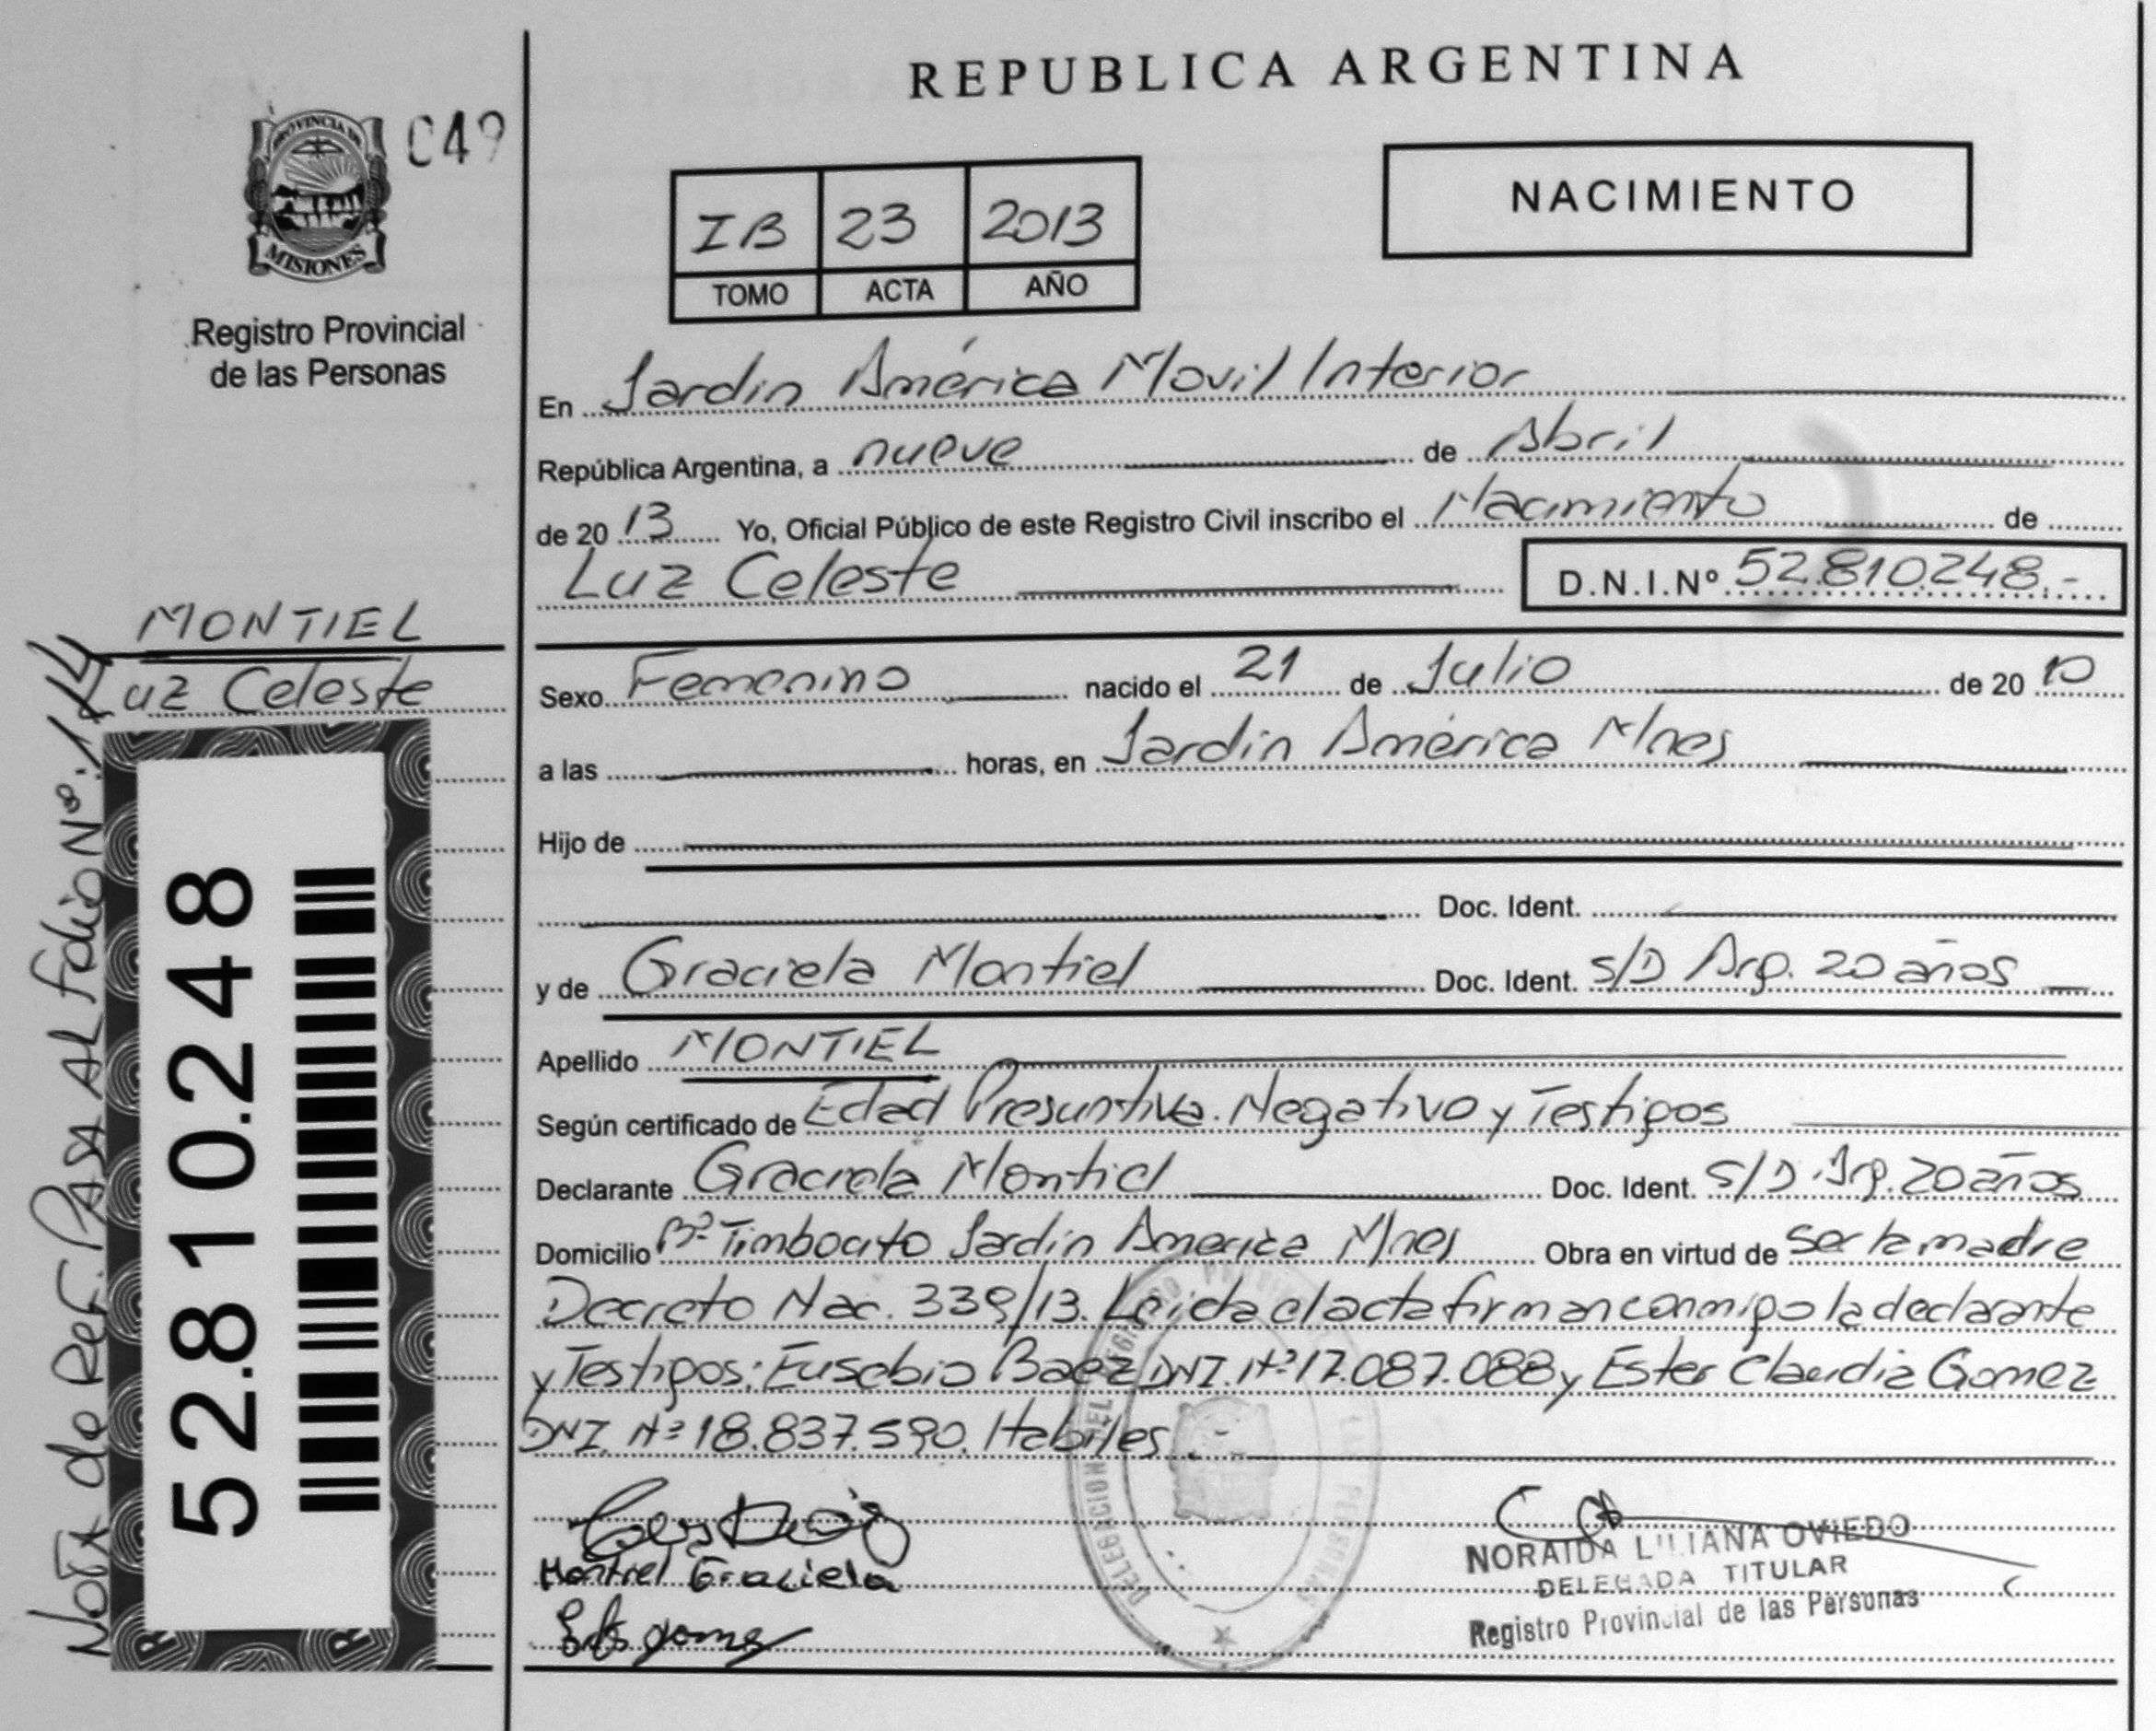 REPUBLICA ARGENTINA
PROVINCIA DE
MISIONES
C49
Registro Provincial
de las Personas
NACIMIENTO
IB 23 2013
TOMO ACTA AÑO
En Jardin América Movil Interior
República Argentina, a nueve de Abril
de 2013 Yo, Oficial Público de este Registro Civil inscribo el Nacimiento de
Luz Celeste D.N.I.Nº 52.810.248.-
MONTIEL
Luz Celeste
Sexo Femenino nacido el 21 de Julio de 2010
a las horas, en Jardin América Mnes
Hijo de
Doc. Ident.
y de Graciela Montiel Doc. Ident. S/D Arg. 20 años
Apellido MONTIEL
Según certificado de Edad Presuntiva. Negativo y Testigos
Declarante Graciela Montiel Doc. Ident. S/D Arg. 20 años
Domicilio Bº Timbocito Jardin America Mnes Obra en virtud de ser la madre
Decreto Nac. 339/13. Leida el acta firman conmigo la declarante
y Testigos: Eusebio Baez DNI. Nº 17.087.088 y Ester Claudia Gomez
DNI. Nº 18.837.590. Habiles
Montiel Graciela
NORAIDA LILIANA OVIEDO
DELEGADA TITULAR
Registro Provincial de las Personas
52.810.248
Nota de Ref. Pasa AL folio Nº. 114